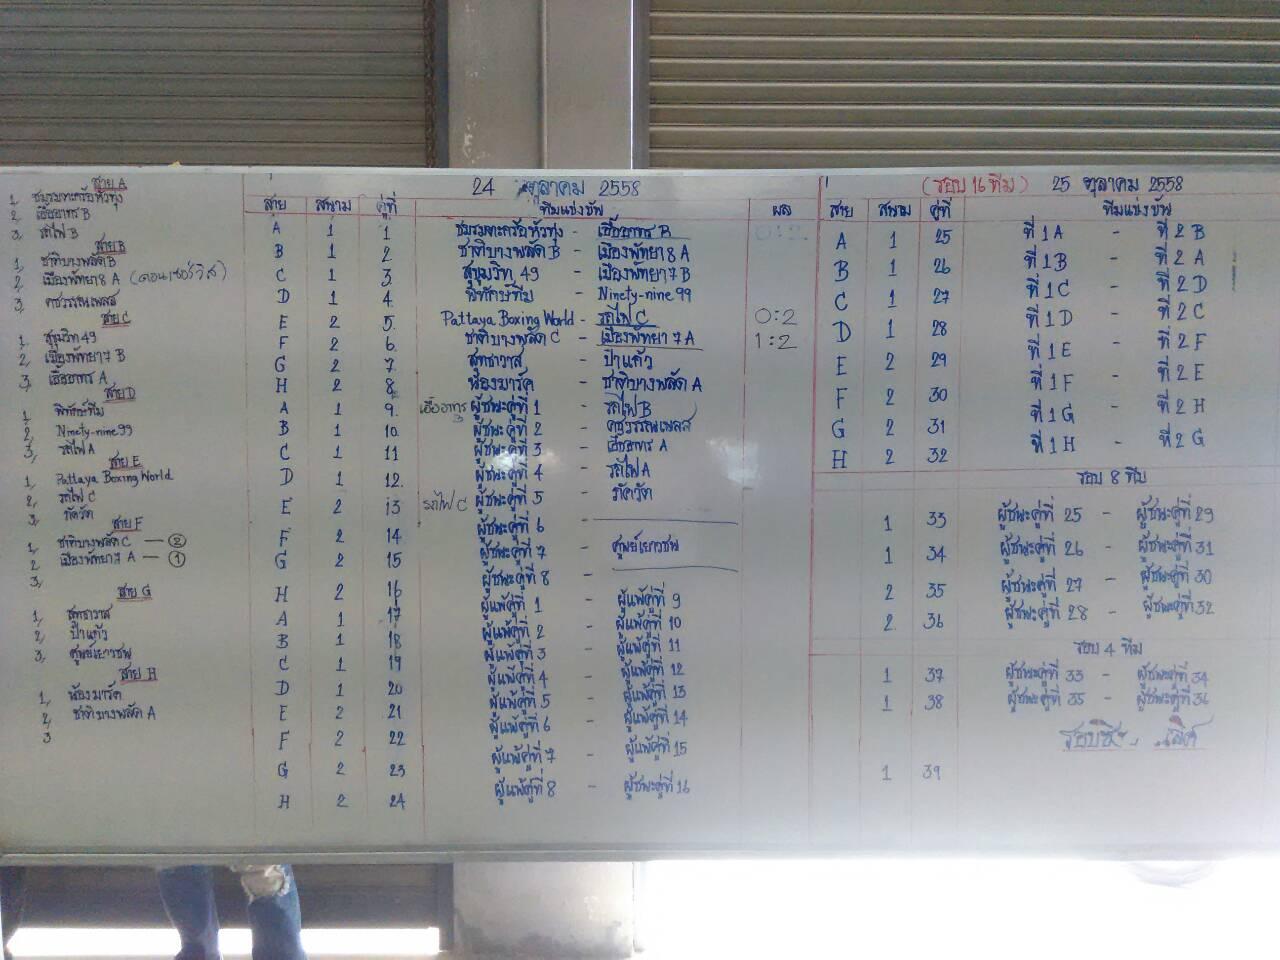 สาย A
1, ชมรมตะกร้อหัวทุ่ง
2, เอื้ออาทร B
3, รถไฟ B
สาย B
1, ชาติบางพลัด B
2, เมืองพัทยา8 A
3,
สาย C
1, สุขุมวิท 49
2, เมืองพัทยา7 B
3, เอื้ออาทร A
สาย D
1, พิทักษ์ทีม
2, Ninety-nine99
3, รถไฟ A
สาย E
1, Pattaya Boxing World
2, รถไฟ C
3, ภัควัต
สาย F
1, ชาติบางพลัด C — ②
2, เมืองพัทยา7 A — ①
3,
สาย G
1, สุทธาวาส
2, ป่าแก้ว
3, ศูนย์เยาวชน
สาย H
1, น้องมาร์ค
2, ชาติบางพลัด A
3
24 ตุลาคม 2558
สาย สนาม คู่ที่ ทีมแข่งขัน ผล
A 1 1 ชมรมตะกร้อหัวทุ่ง - เอื้ออาทร B 0:2
B 1 2 ชาติบางพลัด B - เมืองพัทยา8 A
C 1 3 สุขุมวิท 49 - เมืองพัทยา7 B
D 1 4 พิทักษ์ทีม - Ninety-nine99
E 2 5 Pattaya Boxing World - รถไฟ C 0:2
F 2 6 ชาติบางพลัด C - เมืองพัทยา7 A 1:2
G 2 7 สุทธาวาส - ป่าแก้ว
H 2 8 น้องมาร์ค - ชาติบางพลัด A
A 1 9 เอื้ออาทร ผู้ชนะคู่ที่ 1 - รถไฟ B
B 1 10 ผู้ชนะคู่ที่ 2 -
C 1 11 ผู้ชนะคู่ที่ 3 - เอื้ออาทร A
D 1 12 ผู้ชนะคู่ที่ 4 - รถไฟ A
E 2 13 รถไฟ C ผู้ชนะคู่ที่ 5 - ภัควัต
F 2 14 ผู้ชนะคู่ที่ 6 -
G 2 15 ผู้ชนะคู่ที่ 7 - ศูนย์เยาวชน
H 2 16 ผู้ชนะคู่ที่ 8 -
A 1 17 ผู้แพ้คู่ที่ 1 - ผู้แพ้คู่ที่ 9
B 1 18 ผู้แพ้คู่ที่ 2 - ผู้แพ้คู่ที่ 10
C 1 19 ผู้แพ้คู่ที่ 3 - ผู้แพ้คู่ที่ 11
D 1 20 ผู้แพ้คู่ที่ 4 - ผู้แพ้คู่ที่ 12
E 2 21 ผู้แพ้คู่ที่ 5 - ผู้แพ้คู่ที่ 13
F 2 22 ผู้แพ้คู่ที่ 6 - ผู้แพ้คู่ที่ 14
G 2 23 ผู้แพ้คู่ที่ 7 - ผู้แพ้คู่ที่ 15
H 2 24 ผู้แพ้คู่ที่ 8 - ผู้ชนะคู่ที่ 16
(รอบ 16 ทีม) 25 ตุลาคม 2558
สาย สนาม คู่ที่ ทีมแข่งขัน
A 1 25 ที่ 1 A - ที่ 2 B
B 1 26 ที่ 1 B - ที่ 2 A
C 1 27 ที่ 1 C - ที่ 2 D
D 1 28 ที่ 1 D - ที่ 2 C
E 2 29 ที่ 1 E - ที่ 2 F
F 2 30 ที่ 1 F - ที่ 2 E
G 2 31 ที่ 1 G - ที่ 2 H
H 2 32 ที่ 1 H - ที่ 2 G
รอบ 8 ทีม
1 33 ผู้ชนะคู่ที่ 25 - ผู้ชนะคู่ที่ 29
1 34 ผู้ชนะคู่ที่ 26 - ผู้ชนะคู่ที่ 31
2 35 ผู้ชนะคู่ที่ 27 - ผู้ชนะคู่ที่ 30
2 36 ผู้ชนะคู่ที่ 28 - ผู้ชนะคู่ที่ 32
รอบ 4 ทีม
1 37 ผู้ชนะคู่ที่ 33 - ผู้ชนะคู่ที่ 34
1 38 ผู้ชนะคู่ที่ 35 - ผู้ชนะคู่ที่ 36
1 39